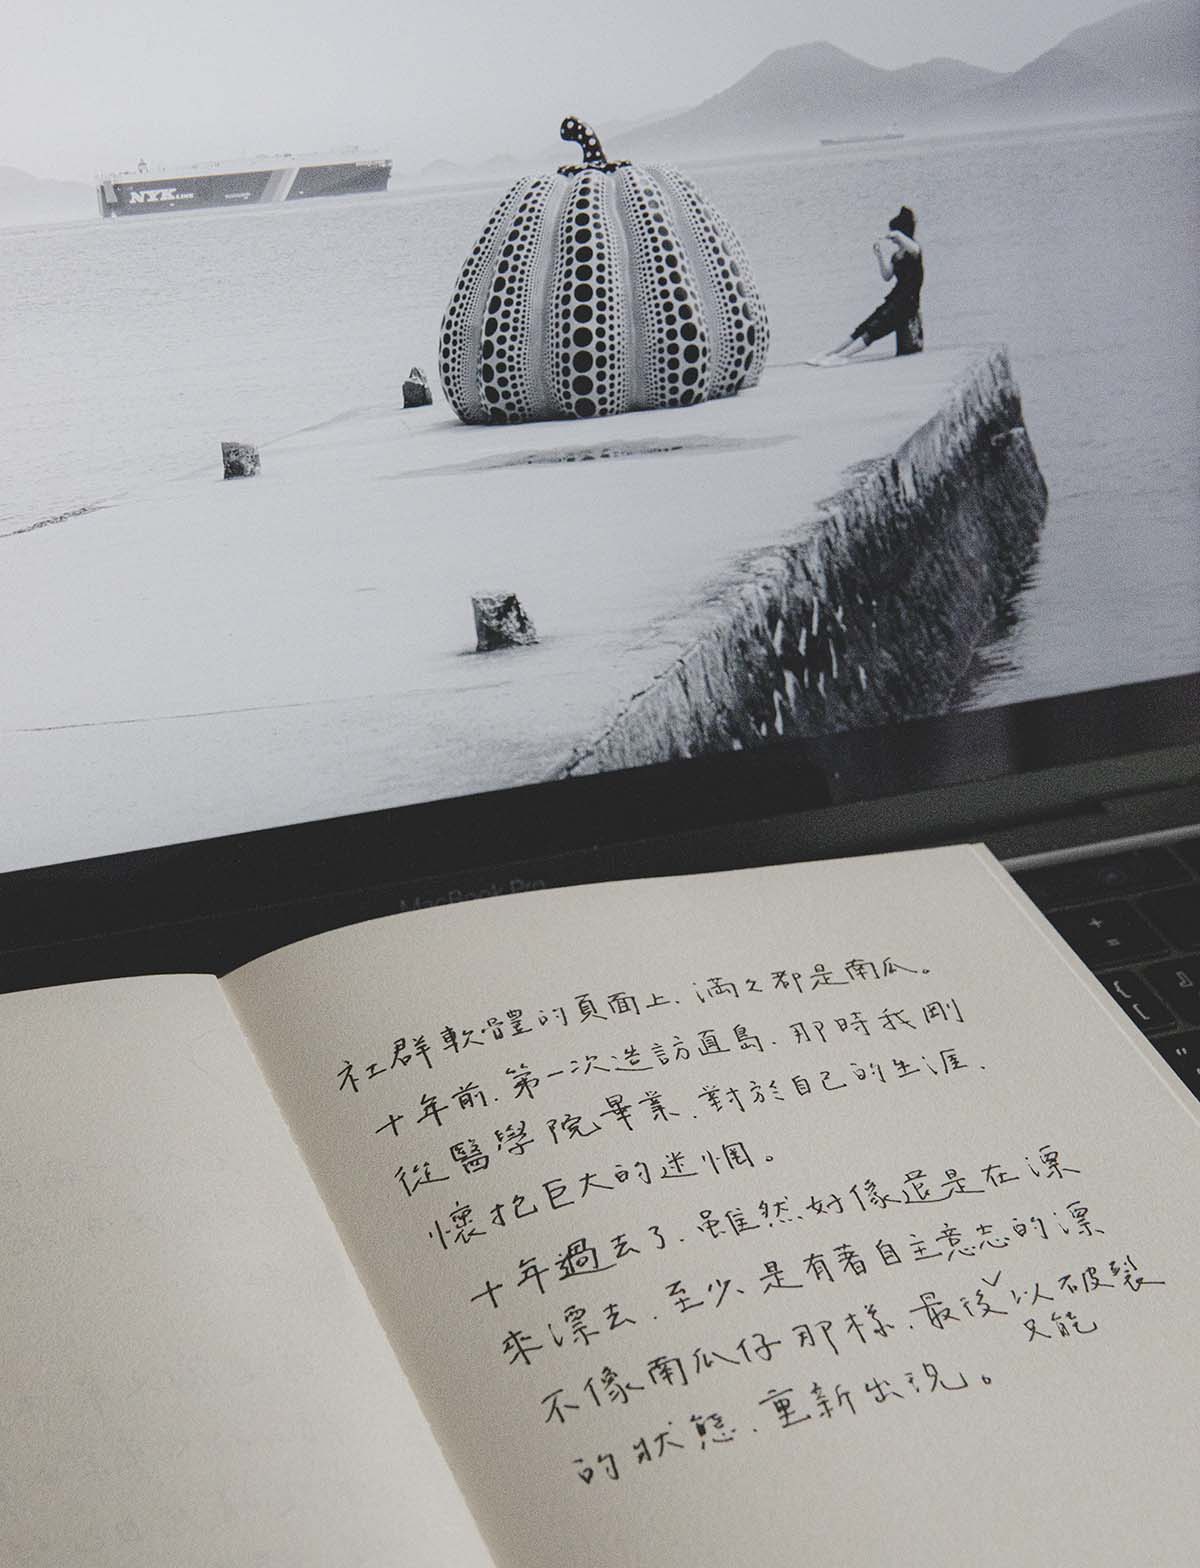 NYK LINE
MacBook Pro
社群軟體的頁面上、滿々都是南瓜。
十年前、第一次造訪直島、那時我剛
從醫學院畢業、對於自己的生涯、
懷抱巨大的迷惘。
十年過去了、雖然好像還是在漂
來漂去、至少是有著自主意志的漂
不像南瓜仔那樣、最後只能以破裂
的狀態、重新出現。